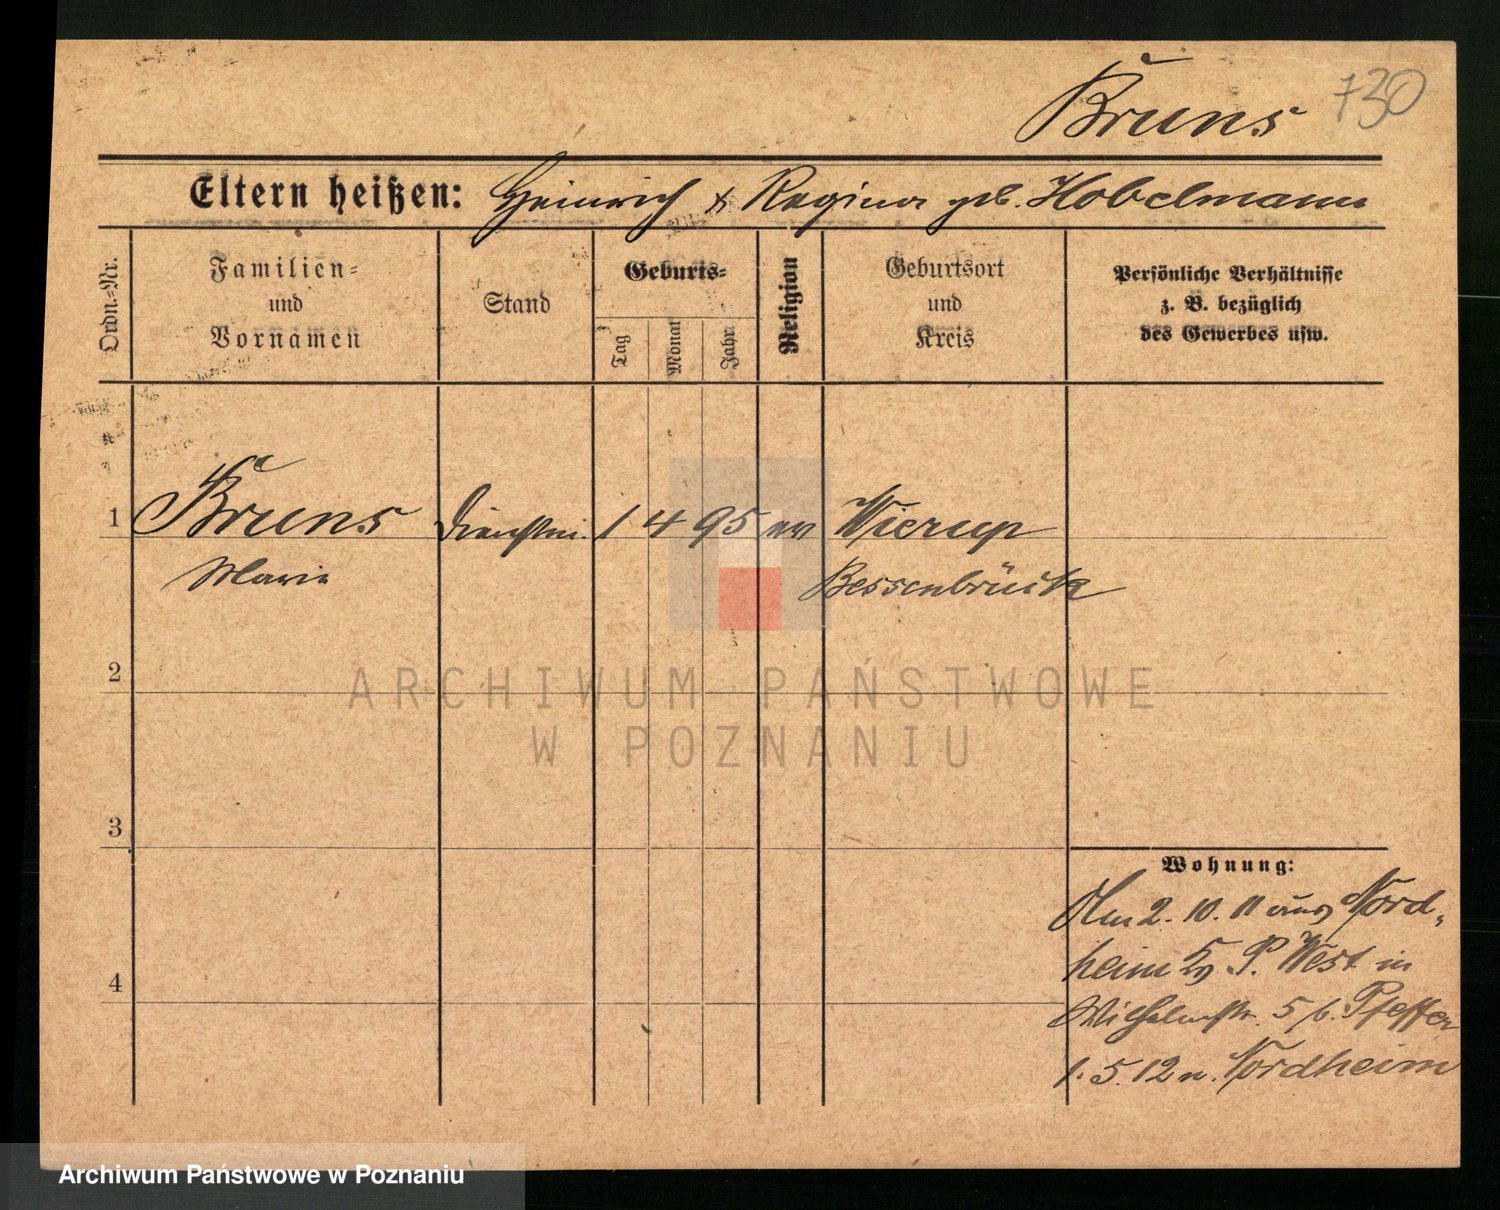 Bruns 730
Eltern heißen: Heinrich & Regina geb. Hobelmann
Ordn.-Nr.
Familien-
und
Vornamen
Stand
Geburts-
Tag
Monat
Jahr
Religion
Geburtsort
und
Kreis
Persönliche Verhältnisse
z. B. bezüglich
des Gewerbes usw.
1 Bruns Dienstm. 1 4 95 ev Wierup
Marie Bessenbrück
2
ARCHIWUM PAŃSTWOWE
W POZNANIU
3
Wohnung:
Am 2. 10. 11 aus Nord-
heim P. West in
4
Wilhelmstr. 5 b. Pfeffer
1. 5. 12 n. Nordheim
Archiwum Państwowe w Poznaniu